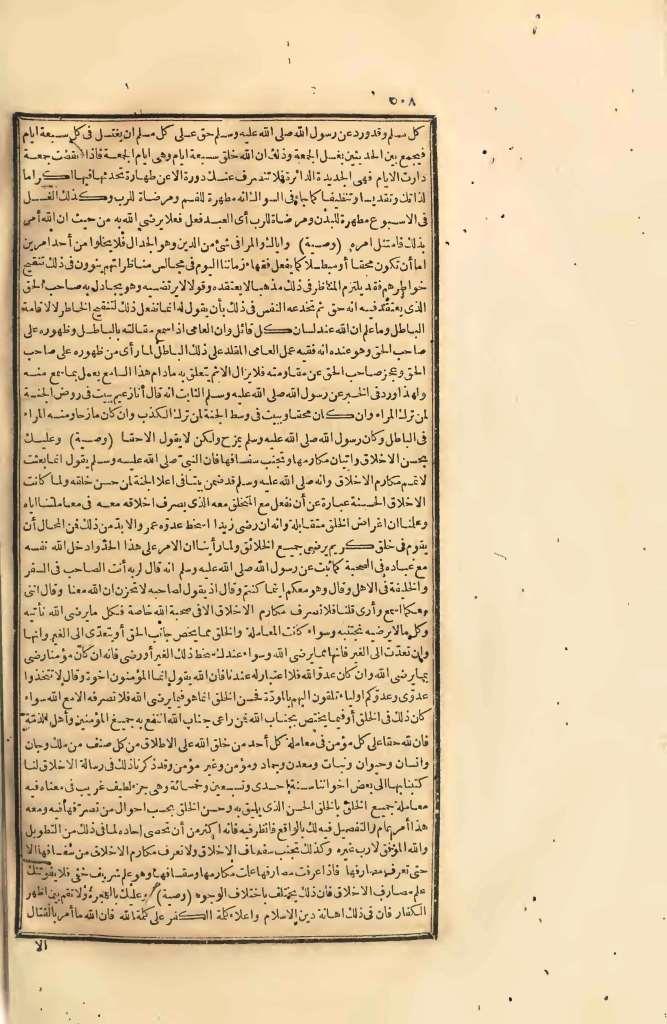 ٥٠٨
كل مسلم وقد ورد عن رسول الله صلى الله عليه وسلم حق على كل مسلم ان يغتسل فى كل سبعة ايام
فيجمع بين الحديثين بغسل الجمعة وذلك ان الله خلق سبعة ايام وهى ايام الجمعة فاذا انقضت جمعة
دارت الايام فهى الجديدة الدائرة فلا تنصرف عنك دورة الا عن طهارة تحدثها فيها اكراما
لذاتك وتقديسا وتنظيفا كما جاء فى السواك انه مطهرة للفم ومرضاة للرب وكذلك الغسل
فى الاسبوع مطهرة للبدن ومرضاة للرب أى العبد فعل فعلا يرضى الله به من حيث ان الله أمره
بذلك فامتثل امره (وصية) واياك والمراء فى شئ من الدين وهو الجدال فلا يخلوا من أحد امرين
اما أن تكون محقا أو مبطلا كما يفعل فقهاء زماننا اليوم فى مجالس مناظراتهم ينوون فى ذلك تنقيح
خواطرهم فقد يلتزم المناظر فى ذلك مذهبا لا يعتقده وقولا لا يرتضيه وهو يجادل به صاحب الحق
الذى يعتقد فيه انه حق ثم تخدعه النفس فى ذلك بأن يقول له انما نفعل ذلك لتنقيح الخاطر لا لاقامة
الباطل وما علم ان الله عند لسان كل قائل وان العامى اذا سمع مقالته بالباطل وظهوره على
صاحب الحق وهو عنده انه فقيه عمل العامى المقلد على ذلك الباطل لما رأى من ظهوره على صاحب
الحق وعجز صاحب الحق عن مقاومته فلا يزال الاثم يتعلق به ما دام هذا السامع يعمل بما سمع منه
ولهذا ورد فى الخبر عن رسول الله صلى الله عليه وسلم الثابت انه قال أنا زعيم ببيت فى ربض الجنة
لمن ترك المراء وان كان محقا وببيت فى وسط الجنة لمن ترك الكذب وان كان مازحا ومنه المراء
فى الباطل وكان رسول الله صلى الله عليه وسلم يمزح ولكن لا يقول الا حقا (وصية) وعليك
بحسن الاخلاق واتيان مكارمها وتجنب سفسافها فان النبى صلى الله عليه وسلم يقول انما بعثت
لاتمم مكارم الاخلاق وانه صلى الله عليه وسلم قد ضمن بيتا فى اعلا الجنة لمن حسن خلقه ولما كانت
الاخلاق الحسنة عبارة عن أن نفعل مع المتخلق معه الذى يصرف اخلاقه معه فى معاملتنا اياه
وعلمنا ان اغراض الخلق متقابلة وانه ان رضى زيدا اسخط عدوه عمر ولا بد من ذلك فن المحال أن
يقوم فى خلق كريم يرضى جميع الخلائق ولما رأينا ان الامر على هذا الحد وأدخل الله نفسه
مع عباده فى الصحبة كما ثبت عن رسول الله صلى الله عليه وسلم انه قال لربه أنت الصاحب فى السفر
والخليفة فى الاهل وقال وهو معكم اينما كنتم وقال اذ يقول لصاحبه لا تحزن ان الله معنا وقال اننى
معكما اسمع وأرى قلنا فلا تصرف مكارم الاخلاق الا فى صحبة الله خاصة فكل ما يرضى الله نأتيه
وكل ما لا يرضيه نجتنبه وسواء كانت المعاملة والخلق مما يخص جانب الحق أو يتعدى الى الغير وانها
وان تعدت الى الغير فانها مما يرضى الله وسواء عندك سخط ذلك الغير أو رضى فانه ان كان مؤمنا رضى
بما يرضى الله وان كان عدوا لله فلا اعتبار له عندنا فان الله يقول انما المؤمنون اخوة وقال لا تتخذوا
عدوى وعدوكم اولياء تلقون اليهم بالمودة فحسن الخلق انما هو فيما يرضى الله فلا تصرفه الا مع الله سواء
كان ذلك فى الخلق أو فيما يختص بجناب الله فمن راعى جناب الله انتفع به جميع المؤمنين وأهل الذمة
فان لله حقا على كل مؤمن فى معاملة كل أحد من خلق الله على الاطلاق من كل صنف من ملك وجان
وانسان وحيوان ونبات ومعدن وجماد ومؤمن وغير مؤمن وقد ذكرنا ذلك فى رسالة الاخلاق لنا
كتبنا بها الى بعض اخواننا سنة احدى وتسعين وخمسمائة وهى جزء لطيف غريب فى معناه فيه
معاملة جميع الخلق بالخلق الحسن الذى يليق به وحسن الخلق بحسب احوال من تصرفها فيه ومعه
هذا أمر عام والتفصيل فيه لك بالواقع فانظر فيه فانه اكثر من أن تحصى احاده لما فى ذلك من التطويل
والله الموفق لا رب غيره وكذلك تجنب سفساف الاخلاق ولا تعرف مكارم الاخلاق من سفسافها الا
حتى تعرف مصارفها فاذا عرفت مصارفها علمت مكارمها وسفسافها وهو علم شريف خفى فلا يفوتنك
علم مصارف الاخلاق فان ذلك يختلف باختلاف الوجوه (وصية) وعليك بالهجرة ولا تقم بين اظهر
الكفار فان فى ذلك اهانة دين الاسلام واعلاء كلمة الكفر على كلمة الله فان الله ما أمر بالقتال
الا